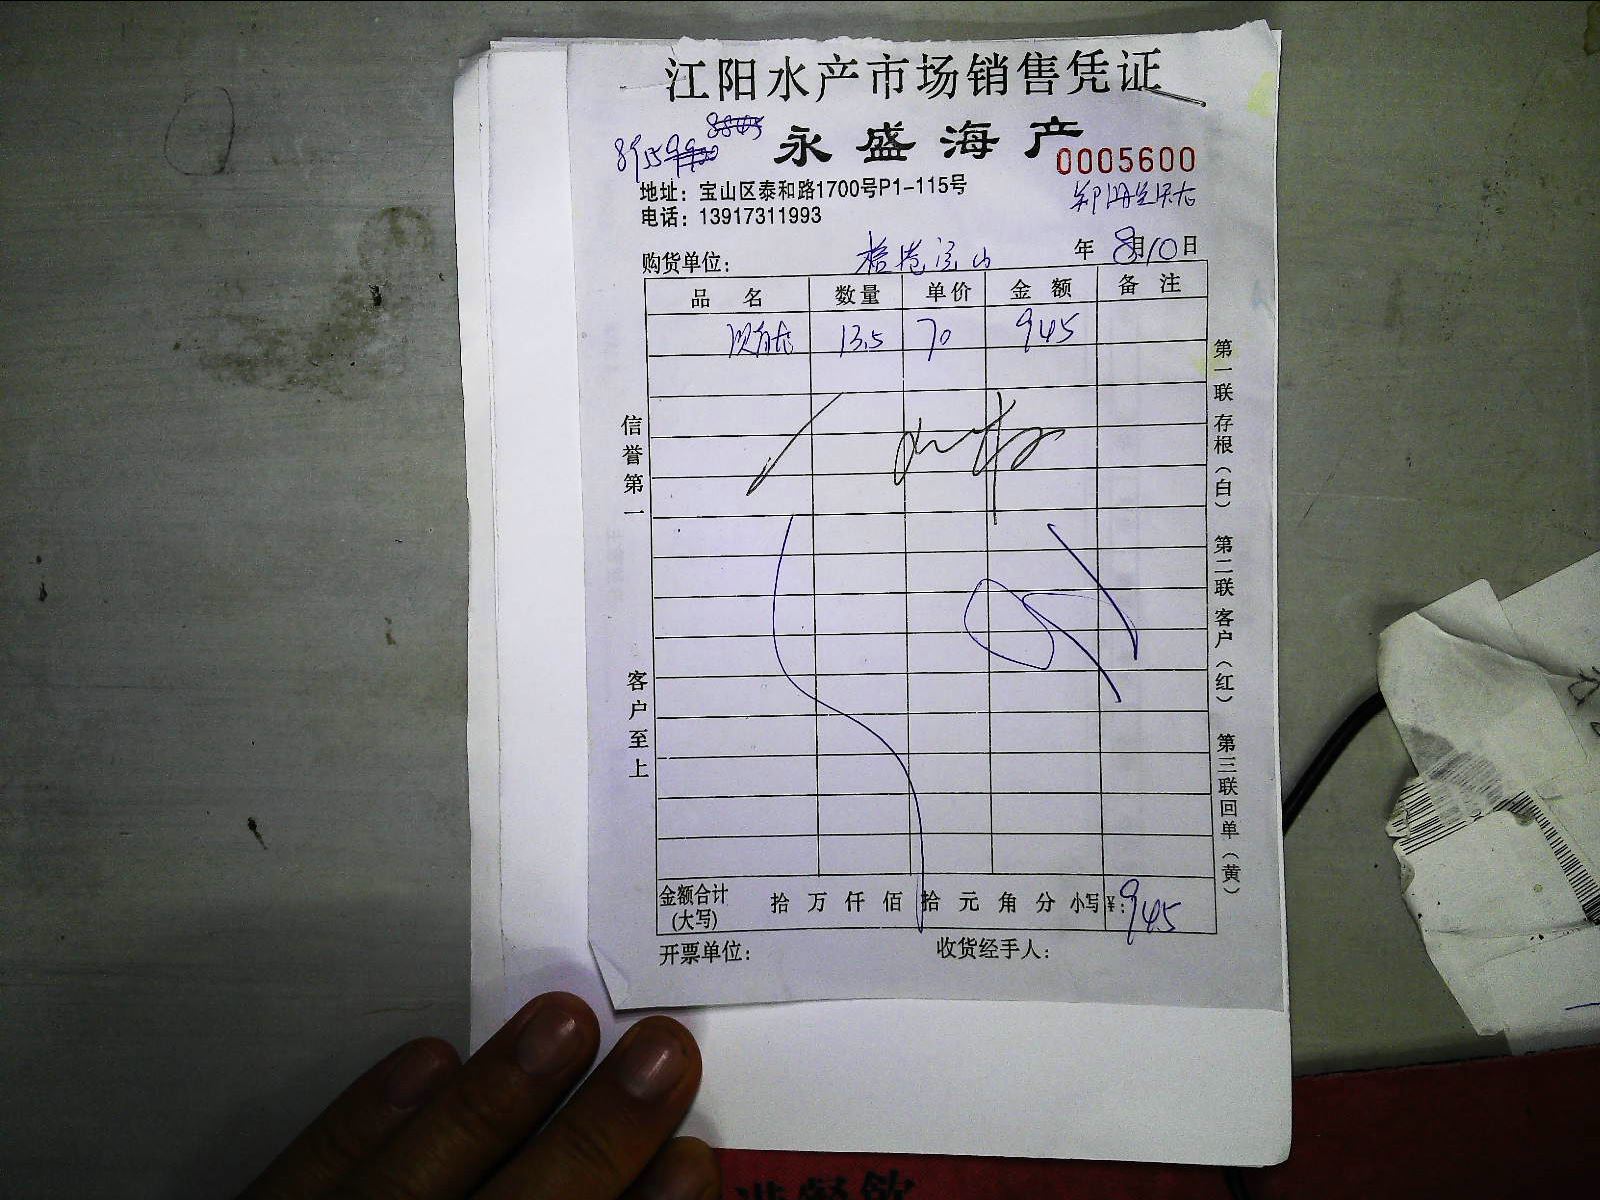 江阳水产市场销售凭证
永盛海产
0005600
地址：宝山区泰和路1700号P1-115号
电话：13917311993
购货单位： 年 8月10日
品名 数量 单价 金额 备注
13.5 70 945
信誉第一
客户至上
第一联存根（白） 第二联客户（红） 第三联回单（黄）
金额合计(大写) 拾 万 仟 佰 拾 元 角 分 小写¥：945
开票单位： 收货经手人：